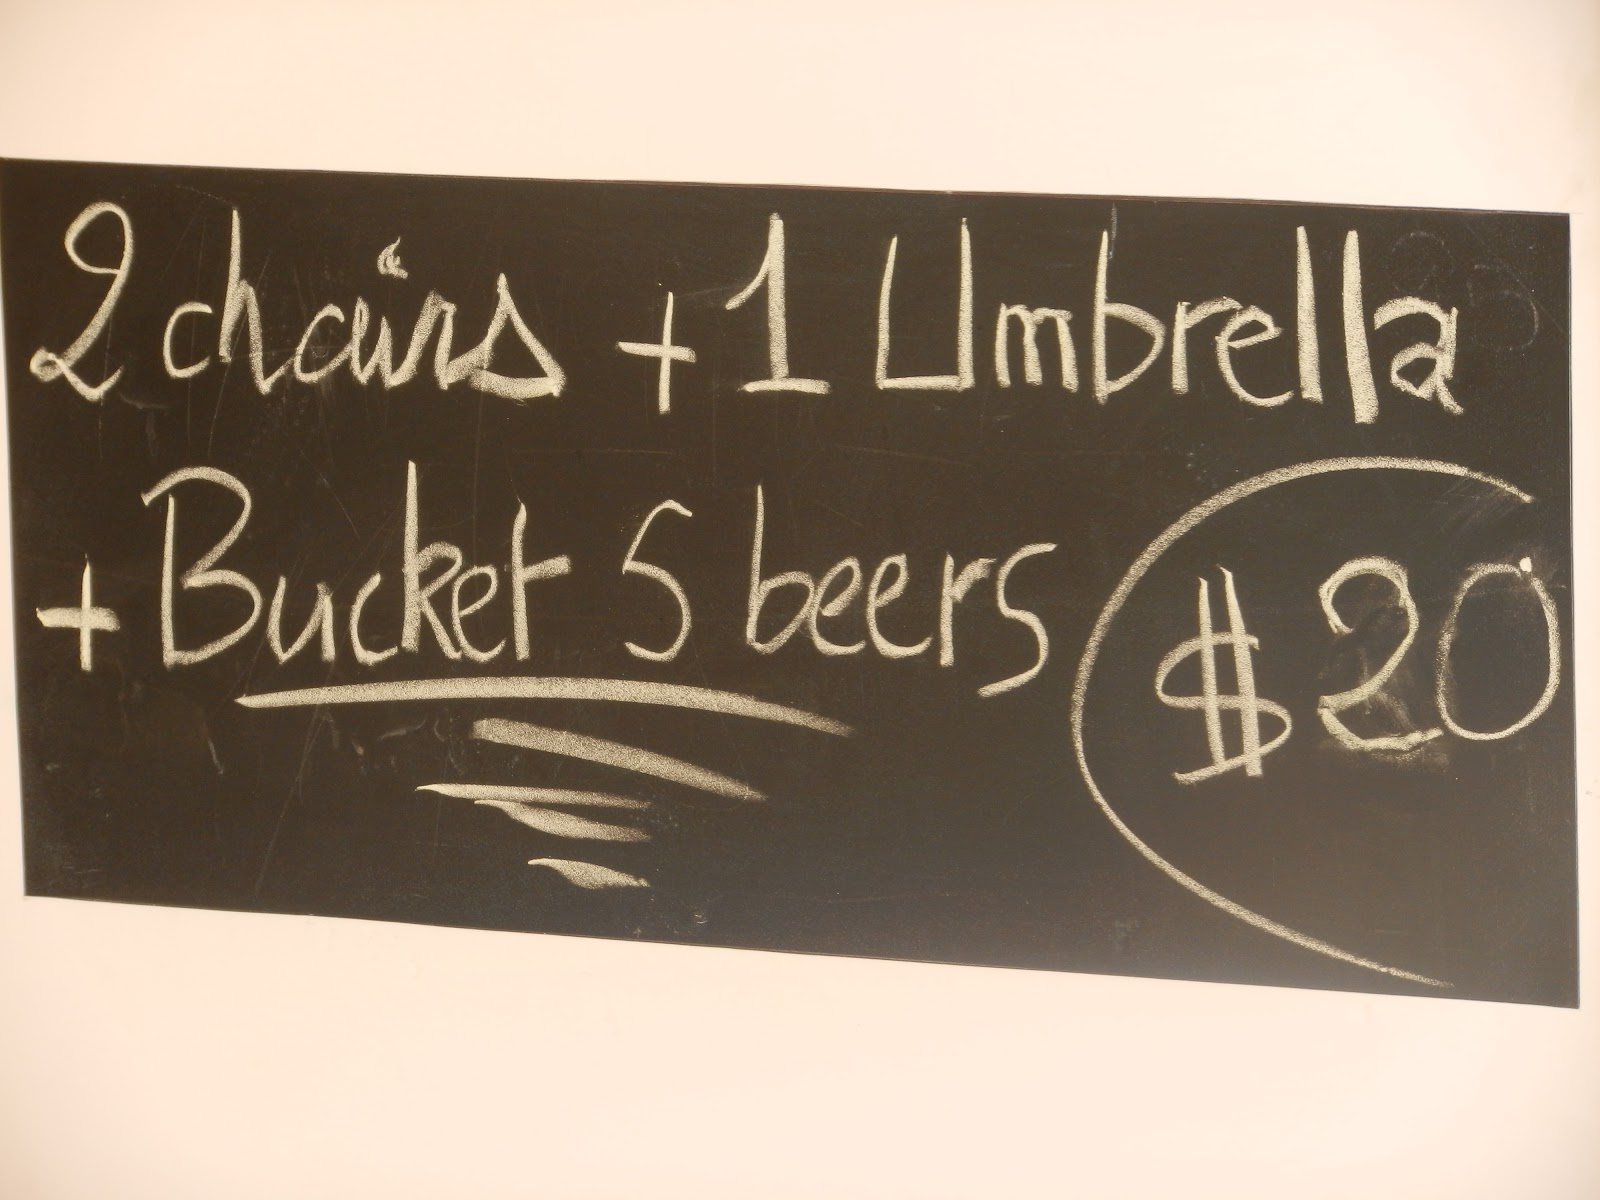 2 chairs + 1 Umbrella
+ Bucket 5 beers $20